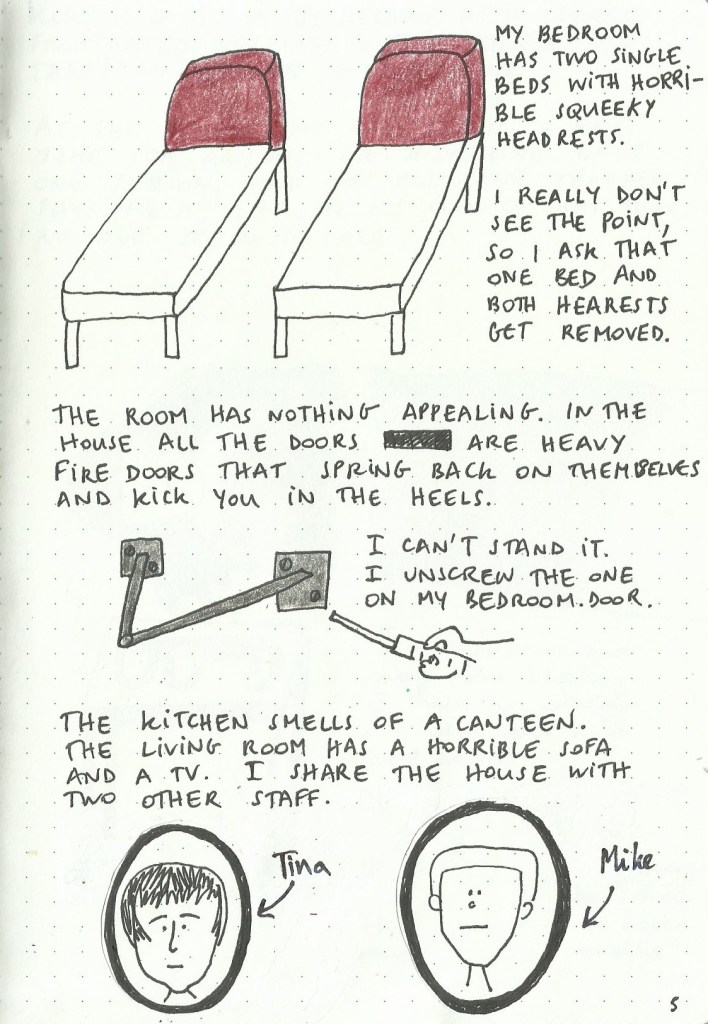 MY BEDROOM
HAS TWO SINGLE
BEDS WITH HORRI-
BLE SQUEEKY
HEADRESTS.
I REALLY DON'T
SEE THE POINT,
SO I ASK THAT
ONE BED AND
BOTH HEARESTS
GET REMOVED.
THE ROOM HAS NOTHING APPEALING. IN THE
HOUSE ALL THE DOORS ARE HEAVY
FIRE DOORS THAT SPRING BACK ON THEMSELVES
AND KICK YOU IN THE HEELS.
I CAN'T STAND IT.
I UNSCREW THE ONE
ON MY BEDROOM.DOOR.
THE KITCHEN SMELLS OF A CANTEEN.
THE LIVING ROOM HAS A HORRIBLE SOFA
AND A TV. I SHARE THE HOUSE WITH
TWO OTHER STAFF.
Tina
Mike
5